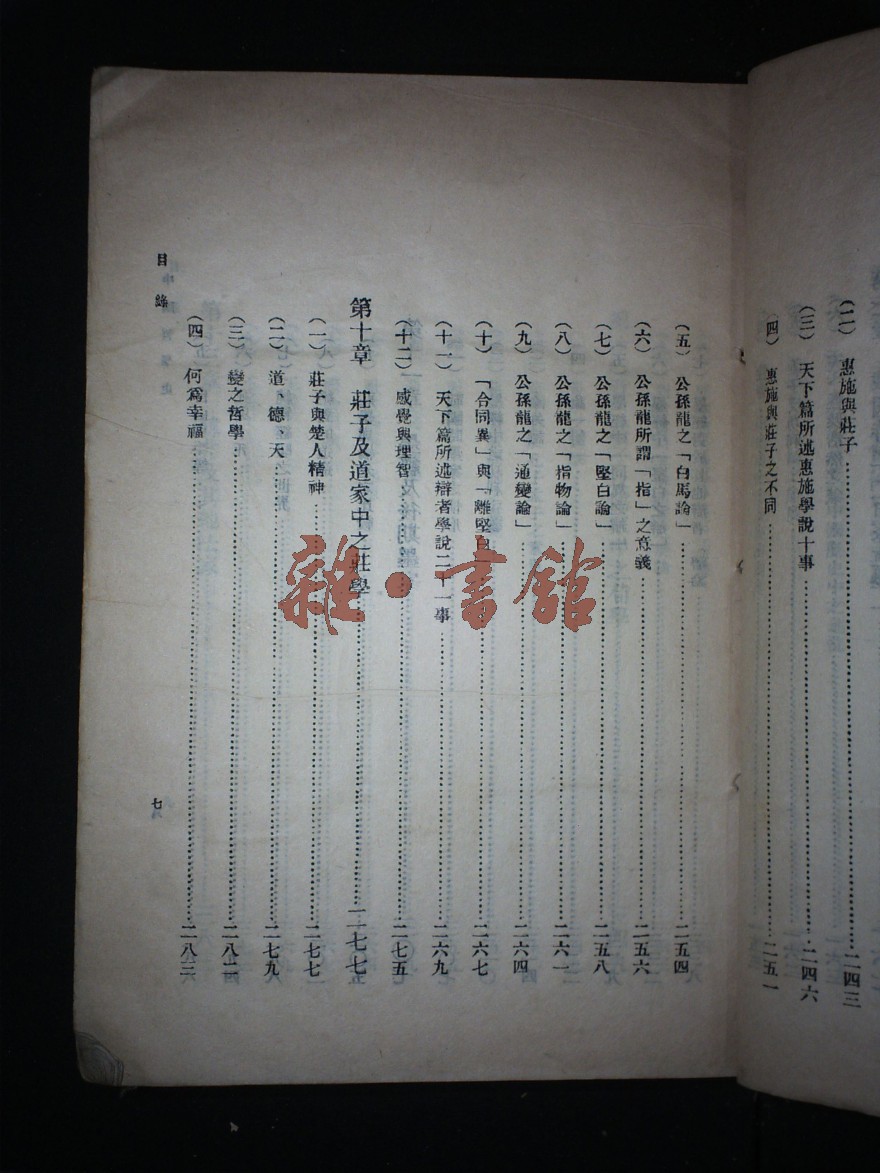 (二) 惠施與莊子……二四三
(三) 天下篇所述惠施學說十事……二四六
(四) 惠施與莊子之不同……二五一
(五) 公孫龍之「白馬論」……二五四
(六) 公孫龍所謂「指」之意義……二五六
(七) 公孫龍之「堅白論」……二五八
(八) 公孫龍之「指物論」……二六一
(九) 公孫龍之「通變論」……二六四
(十) 「合同異」與「離堅白」……二六七
(十一) 天下篇所述辯者學說二十一事……二六九
(十二) 感覺與理智……二七五
第十章 莊子及道家中之莊學……二七七
(一) 莊子與楚人精神……二七七
(二) 道、德、天……二七九
(三) 變之哲學……二八二
(四) 何爲幸福……二八三
目錄
七
雜·書館